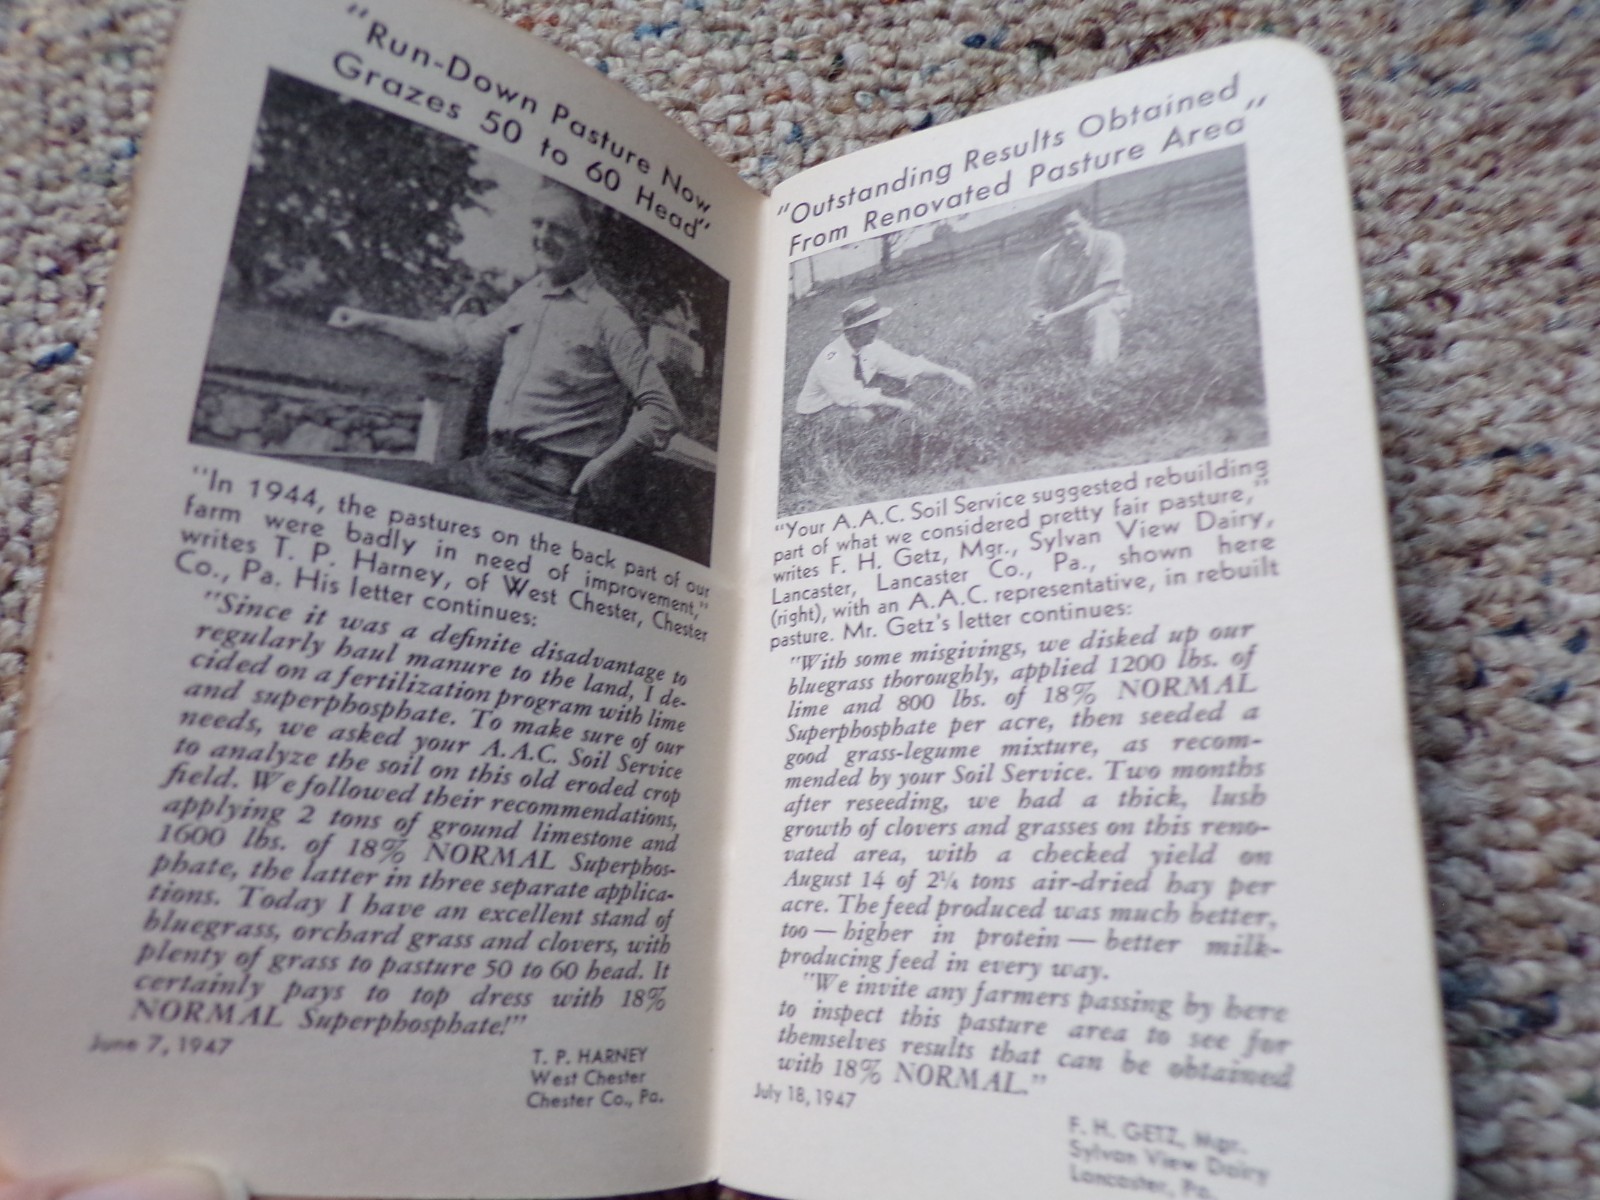 "Run-Down Pasture Now
Grazes 50 to 60 Head"
"In 1944, the pastures on the back part of our
farm were badly in need of improvement,"
writes T. P. Harney, of West Chester, Chester
Co., Pa. His letter continues:
"Since it was a definite disadvantage to
regularly haul manure to the land, I de-
cided on a fertilization program with lime
and superphosphate. To make sure of our
needs, we asked your A.A.C. Soil Service
to analyze the soil on this old eroded crop
field. We followed their recommendations,
applying 2 tons of ground limestone and
1600 lbs. of 18% NORMAL Superphos-
phate, the latter in three separate applica-
tions. Today I have an excellent stand of
bluegrass, orchard grass and clovers, with
plenty of grass to pasture 50 to 60 head. It
certainly pays to top dress with 18%
NORMAL Superphosphate!"
June 7, 1947
T. P. HARNEY
West Chester
Chester Co., Pa.
"Outstanding Results Obtained
From Renovated Pasture Area"
"Your A.A.C. Soil Service suggested rebuilding
part of what we considered pretty fair pasture,"
writes F. H. Getz, Mgr., Sylvan View Dairy,
Lancaster, Lancaster Co., Pa., shown here
(right), with an A.A.C. representative, in rebuilt
pasture. Mr. Getz's letter continues:
"With some misgivings, we disked up our
bluegrass thoroughly, applied 1200 lbs. of
lime and 800 lbs. of 18% NORMAL
Superphosphate per acre, then seeded a
good grass-legume mixture, as recom-
mended by your Soil Service. Two months
after reseeding, we had a thick, lush
growth of clovers and grasses on this reno-
vated area, with a checked yield on
August 14 of 2¼ tons air-dried hay per
acre. The feed produced was much better,
too — higher in protein — better milk-
producing feed in every way.
"We invite any farmers passing by here
to inspect this pasture area to see for
themselves results that can be obtained
with 18% NORMAL."
July 18, 1947
F. H. GETZ, Mgr.
Sylvan View Dairy
Lancaster, Pa.